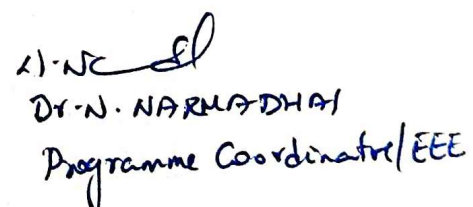 Dr. N. NARMADHAI
Programme Coordinator/EEE